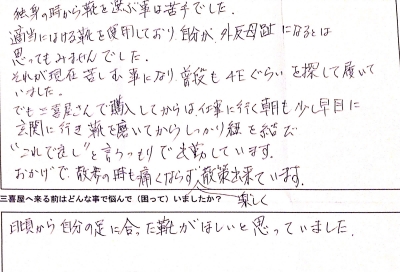 独身の時から靴を選ぶ事は苦手でした。
適当にはける靴を使用しており自分が、外反母趾になるとは
思ってもみませんでした。
それが現在苦しむ事になり普段も4Eぐらいを探して履いて
いました。
でも三喜屋さんで購入してからは、仕事に行く朝も少し早目に
玄関に行き靴を磨いてからしっかり紐を結び
"これで良し"と言うつもりで出勤しています。
おかげで、散歩の時も痛くならず楽しく散策出来ています。
三喜屋へ来る前はどんな事で悩んで（困って）いましたか？
日頃から自分の足に合った靴がほしいと思っていました。